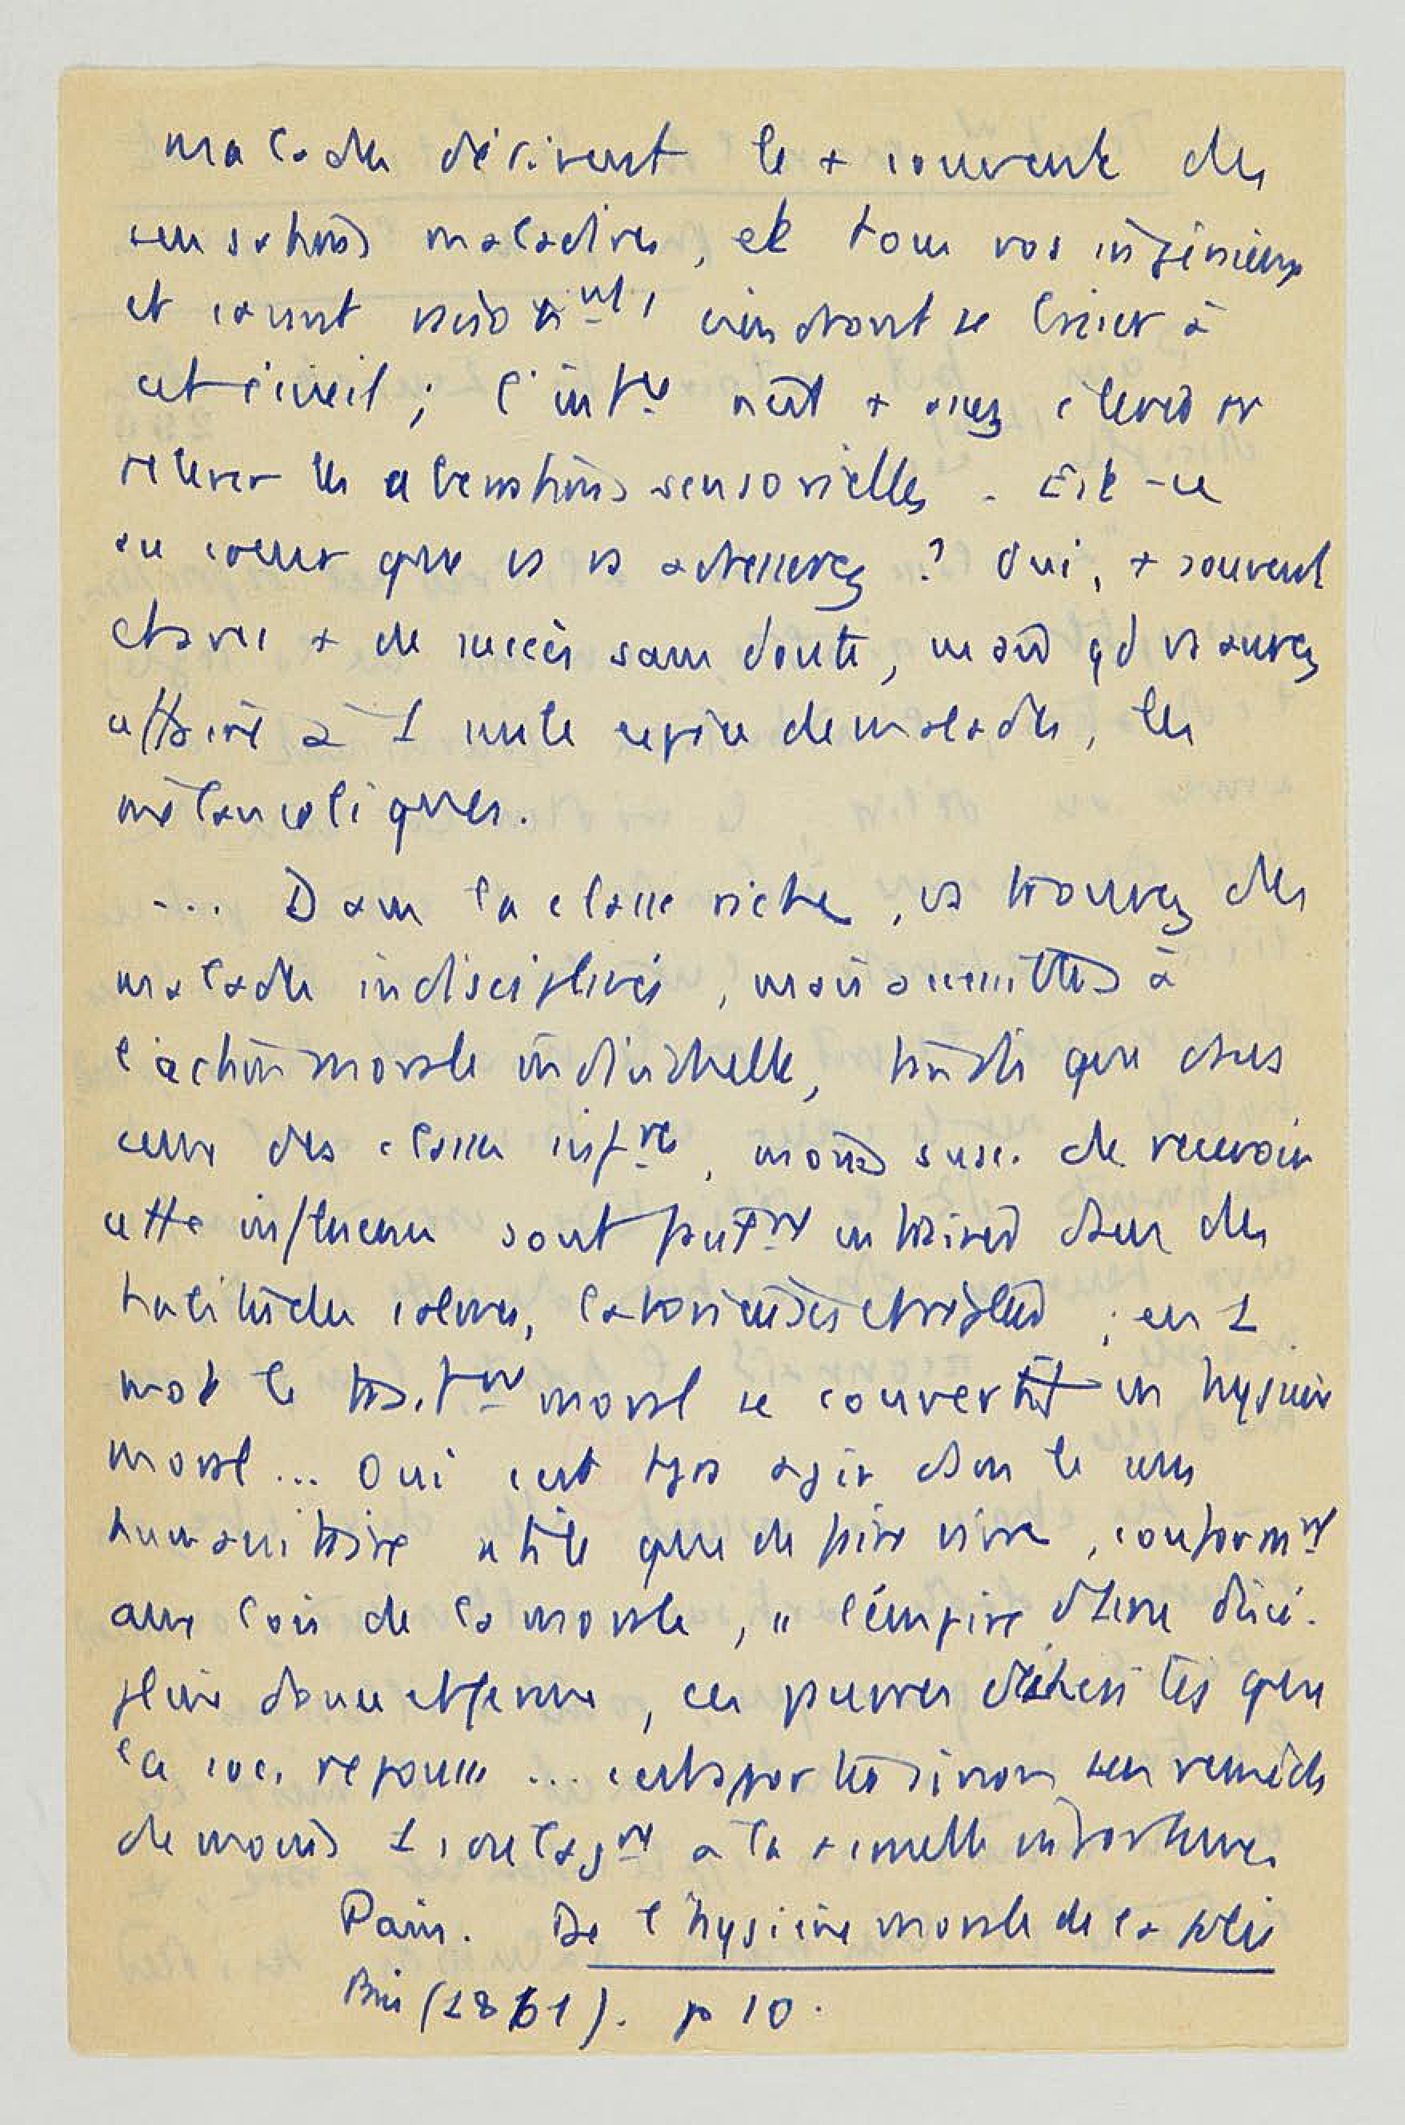 malades dérivent le + souvent des
sensations maladives, et tous vos ingénieux
et savant raisonts viendront se briser à
cet écueil ; l'intce n'est + assez élevée pr
relever les aberrations sensorielles. Est-ce
au coeur que vs vs adressez ? Oui, + souvent
et avec + de succès sans doute, mais qd vs aurez
affaire à 1 seule espèce de malades, les
mélancoliques.
.... Dans la classe riche, vs trouvez des
malades indisciplinés, mais accessibles à
l'action morale individuelle, tandis que chez
ceux des classes infres, moins susc. de recevoir
cette influence sont facilt entrainés dans des
habitudes calmes, laborieuses et réglées ; en 1
mot le traitt moral se convertit en hygiène
morale... Oui c'est tjs agir dans le sens
humanitaire utile que de faire vivre, conformt
aux lois de la morale, ss l'empire d'1 discipline
douce et ferme, ces pauvres déshérités que
la soc. repousse ... c'est apporter sinon un remède
du moins 1 soulagt à la + cruelle infortune
Pain. De l'hygiène morale de la folie
Bis (1861). p 10.